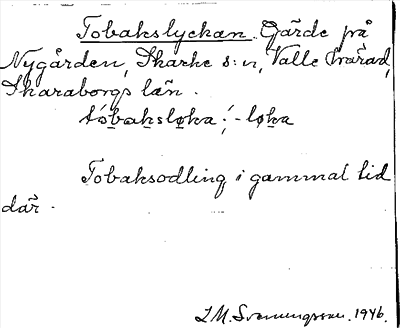 Tobakslyckan. Gärde på
Nygården, Skarke s:n, Valle härad,
Skaraborgs län.
tóbaksløka; -løka
Tobaksodling i gammal tid
där.
L.M. Svenungsson. 1946.